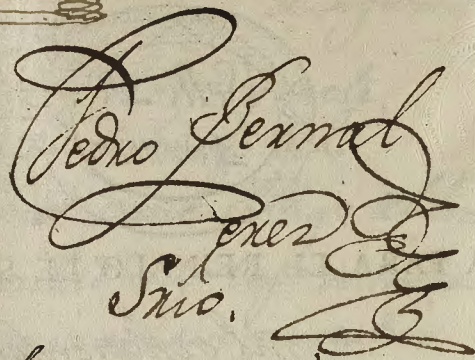 Pedro Bernal
Perez
Srio.